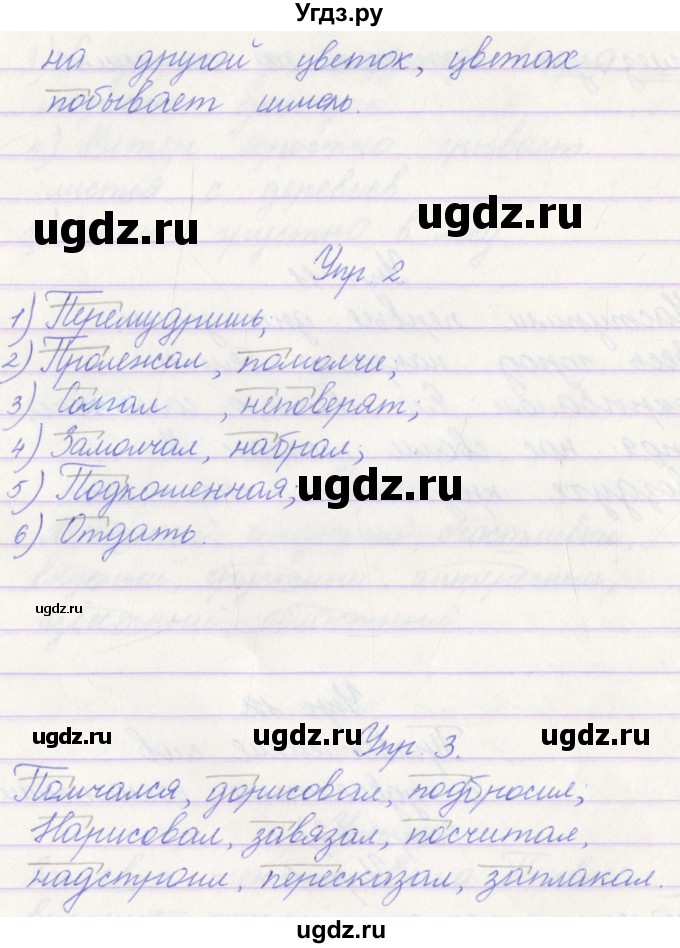 Угдз.ру
на другой цветок, цветах
побывает шмель.
ugdz.ru
ugdz.ru
Упр. 2.
1) Перемудришь;
2) Пролежал, помолчи;
3) Солгал , неповерят;
4) Замолчал, набрал;
5) Подкошенная;
ugdz.ru
6) Отдать.
ugdz.ru
ugdz.ru
ugdz.ru
ugdz.ru
Упр. 3.
Помчался, дорисовал, подбросил;
Нарисовал, завязал, посчитал,
надстроил, пересказал, заплакал.
ugdz.ru
ugdz.ru
ugdz.ru